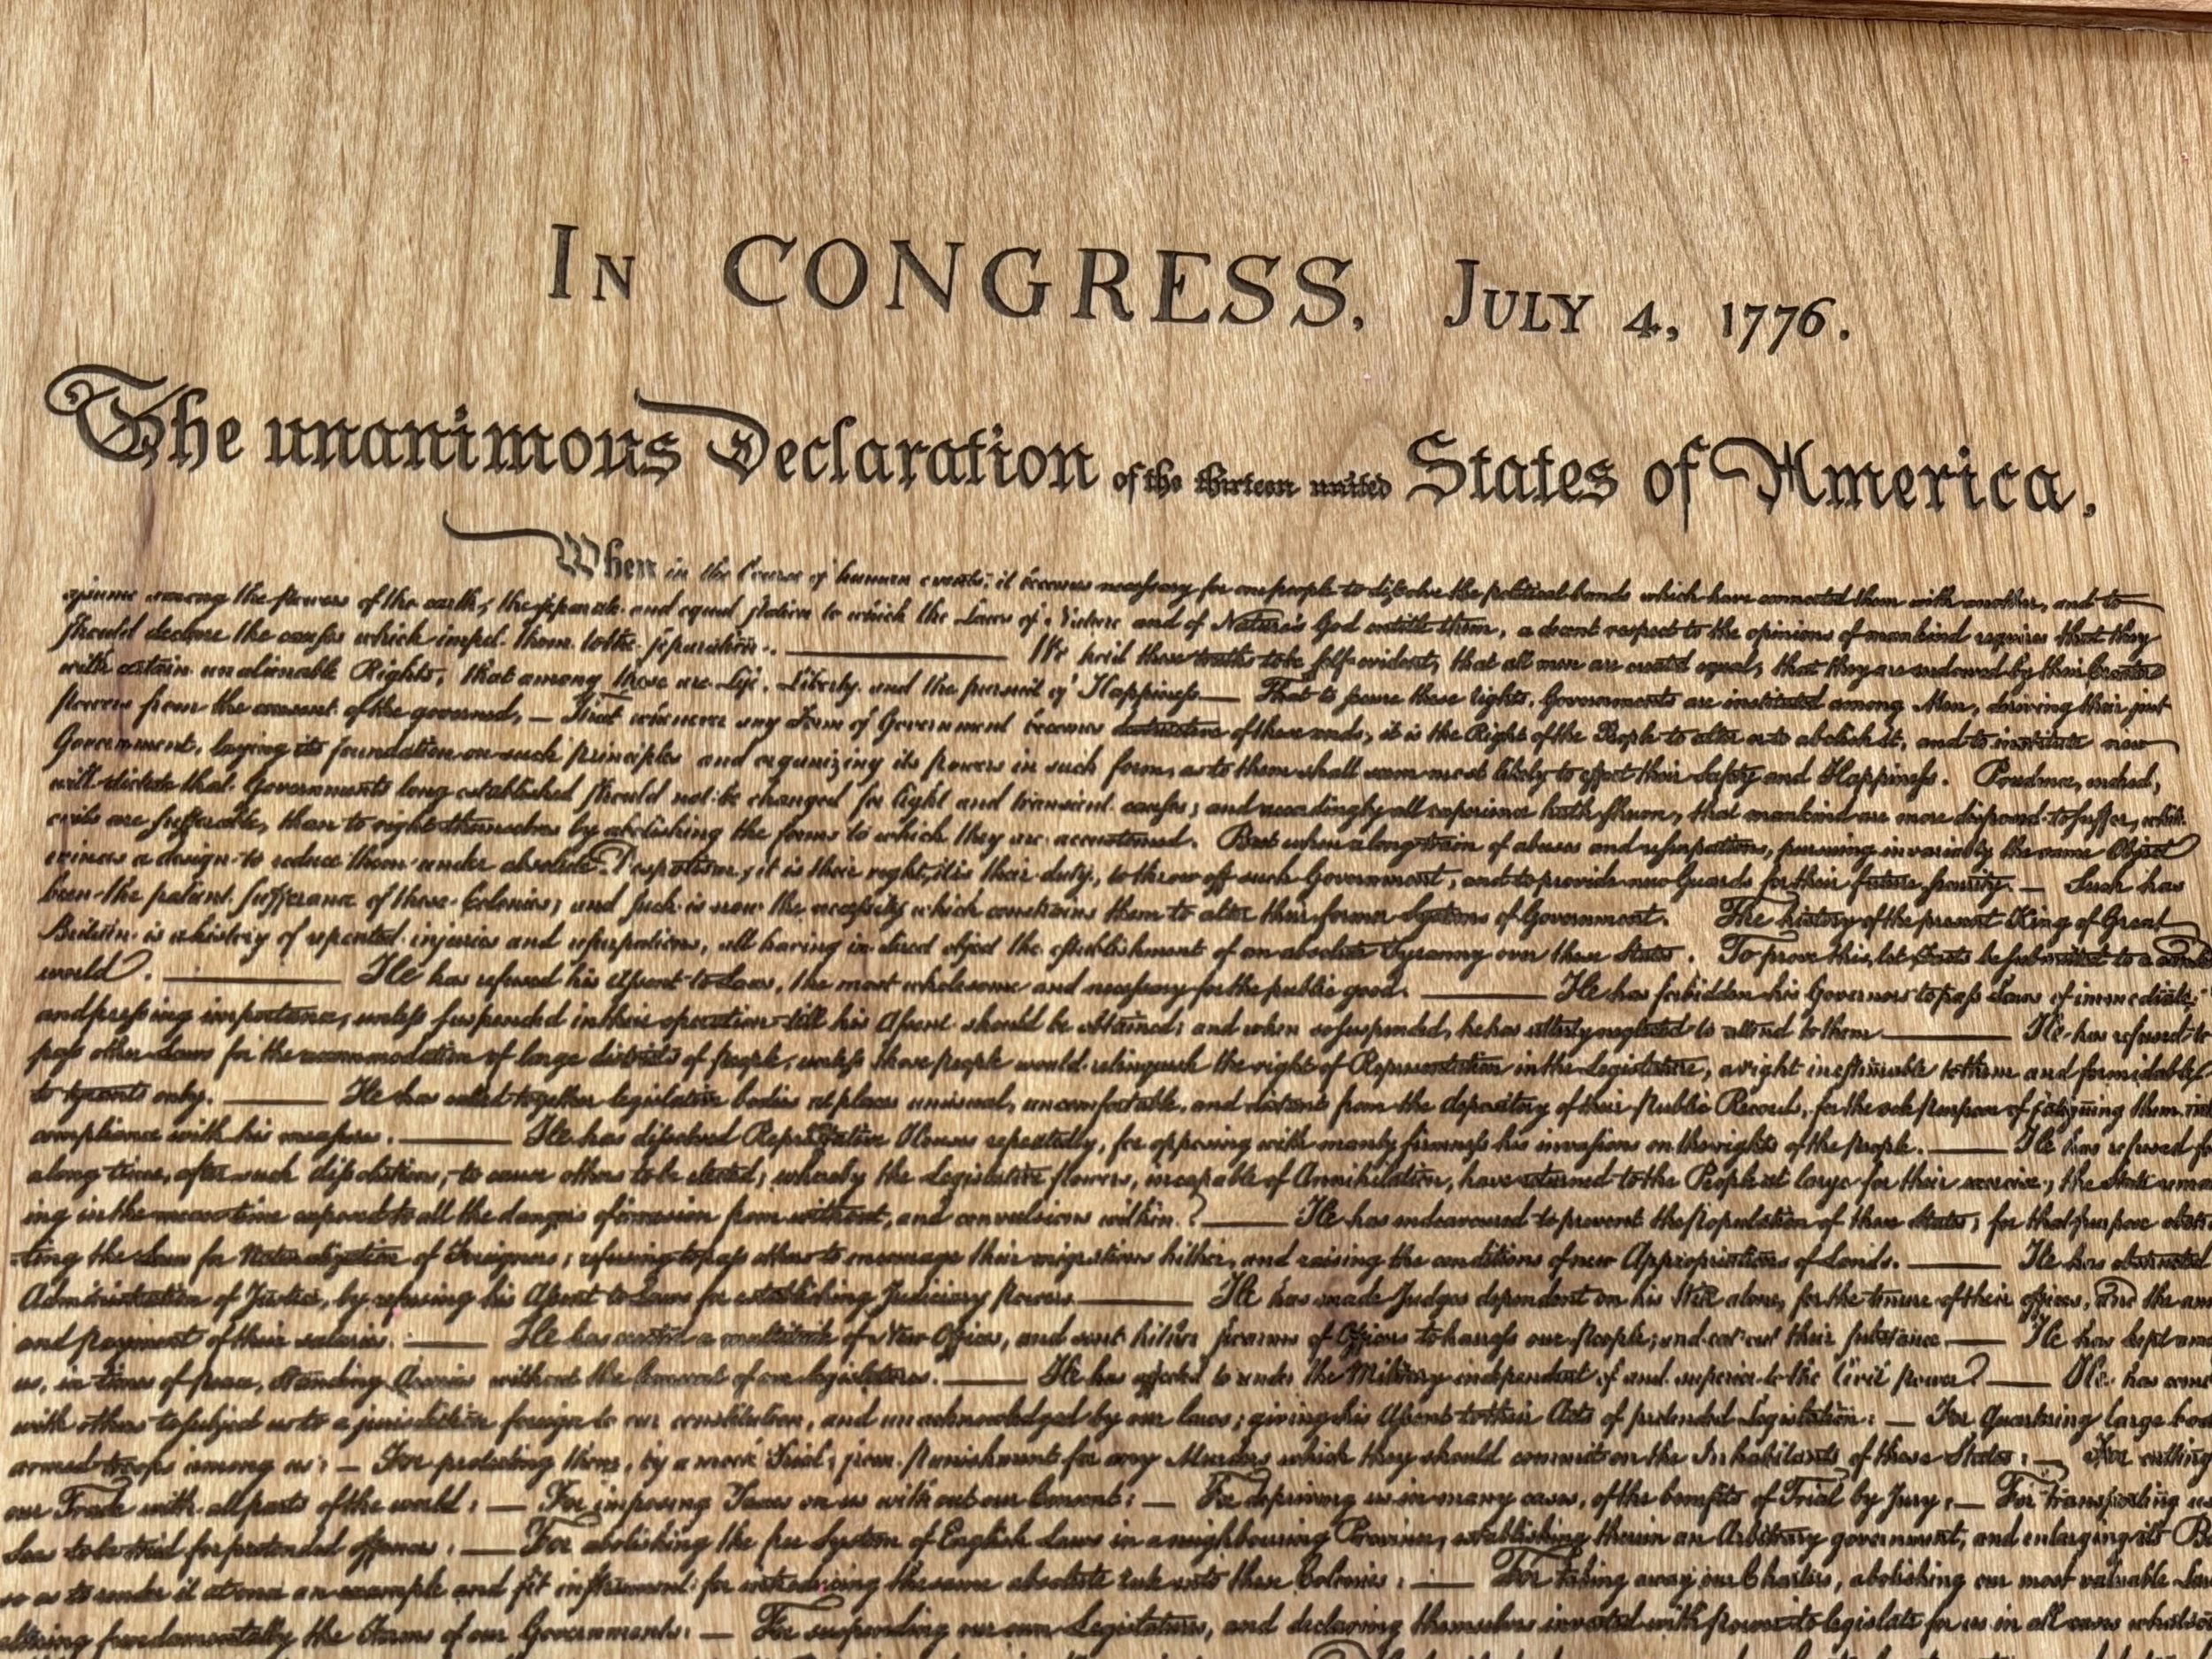 IN CONGRESS, JULY 4, 1776.
The unanimous Declaration of the thirteen united States of America,
When in the Course of human events, it becomes necessary for one people to dissolve the political bands which have connected them with another, and to
among the powers of the earth, the separate and equal station to which the Laws of Nature and of Nature's God entitle them, a decent respect to the opinions of mankind requires that they
should declare the causes which impel them to the separation. We hold these truths to be self-evident, that all men are created equal, that they are endowed by their Creator
with certain unalienable Rights, that among these are Life, Liberty and the pursuit of Happiness — That to secure these rights, Governments are instituted among Men, deriving their just
powers from the consent of the governed, — That whenever any Form of Government becomes destructive of these ends, it is the Right of the People to alter or to abolish it, and to institute new
Government, laying its foundation on such principles and organizing its powers in such form, as to them shall seem most likely to effect their Safety and Happiness. Prudence, indeed,
will dictate that Governments long established should not be changed for light and transient causes; and accordingly all experience hath shewn, that mankind are more disposed to suffer, while
evils are sufferable, than to right themselves by abolishing the forms to which they are accustomed. But when a long train of abuses and usurpations, pursuing invariably the same Object
evinces a design to reduce them under absolute Despotism, it is their right, it is their duty, to throw off such Government, and to provide new Guards for their future security. — Such has
been the patient sufferance of these Colonies; and such is now the necessity which constrains them to alter their former Systems of Government. The history of the present King of Great
Britain is a history of repeated injuries and usurpations, all having in direct object the establishment of an absolute Tyranny over these States. To prove this, let Facts be submitted to a candid
world. He has refused his Assent to Laws, the most wholesome and necessary for the public good. He has forbidden his Governors to pass Laws of immediate
and pressing importance, unless suspended in their operation till his Assent should be obtained; and when so suspended, he has utterly neglected to attend to them. He has refused to
pass other Laws for the accommodation of large districts of people, unless those people would relinquish the right of Representation in the Legislature, a right inestimable to them and formidable
to tyrants only. He has called together legislative bodies at places unusual, uncomfortable, and distant from the depository of their Public Records, for the sole purpose of fatiguing them into
compliance with his measures. He has dissolved Representative Houses repeatedly, for opposing with manly firmness his invasions on the rights of the people. He has refused for
a long time, after such dissolutions, to cause others to be elected; whereby the Legislative powers, incapable of Annihilation, have returned to the People at large for their exercise; the State remain
ing in the mean time exposed to all the dangers of invasion from without, and convulsions within. He has endeavoured to prevent the population of these States; for that purpose obstruc
ting the Laws for Naturalization of Foreigners; refusing to pass others to encourage their migrations hither, and raising the conditions of new Appropriations of Lands. He has obstructed
Administration of Justice, by refusing his Assent to Laws for establishing Judiciary powers. He has made Judges dependent on his Will alone, for the tenure of their offices, and the am
and payment of their salaries. He has erected a multitude of New Offices, and sent hither swarms of Officers to harrass our people, and eat out their substance. He has kept am
us, in times of peace, Standing Armies without the Consent of our legislatures. He has affected to render the Military independent of and superior to the Civil power. He has com
with others to subject us to a jurisdiction foreign to our constitution, and unacknowledged by our laws; giving his Assent to their Acts of pretended Legislation: — For Quartering large bod
armed troops among us: — For protecting them, by a mock Trial, from punishment for any Murders which they should commit on the Inhabitants of these States: — For cutting
our Trade with all parts of the world: — For imposing Taxes on us without our Consent: — For depriving us in many cases, of the benefits of Trial by Jury: — For transporting us
Seas to be tried for pretended offences: — For abolishing the free System of English Laws in a neighbouring Province, establishing therein an Arbitrary government, and enlarging its B
so as to render it at once an example and fit instrument for introducing the same absolute rule into these Colonies: — For taking away our Charters, abolishing our most valuable Laws
altering fundamentally the Forms of our Governments: — For suspending our own Legislatures, and declaring themselves invested with power to legislate for us in all cases whatsoe